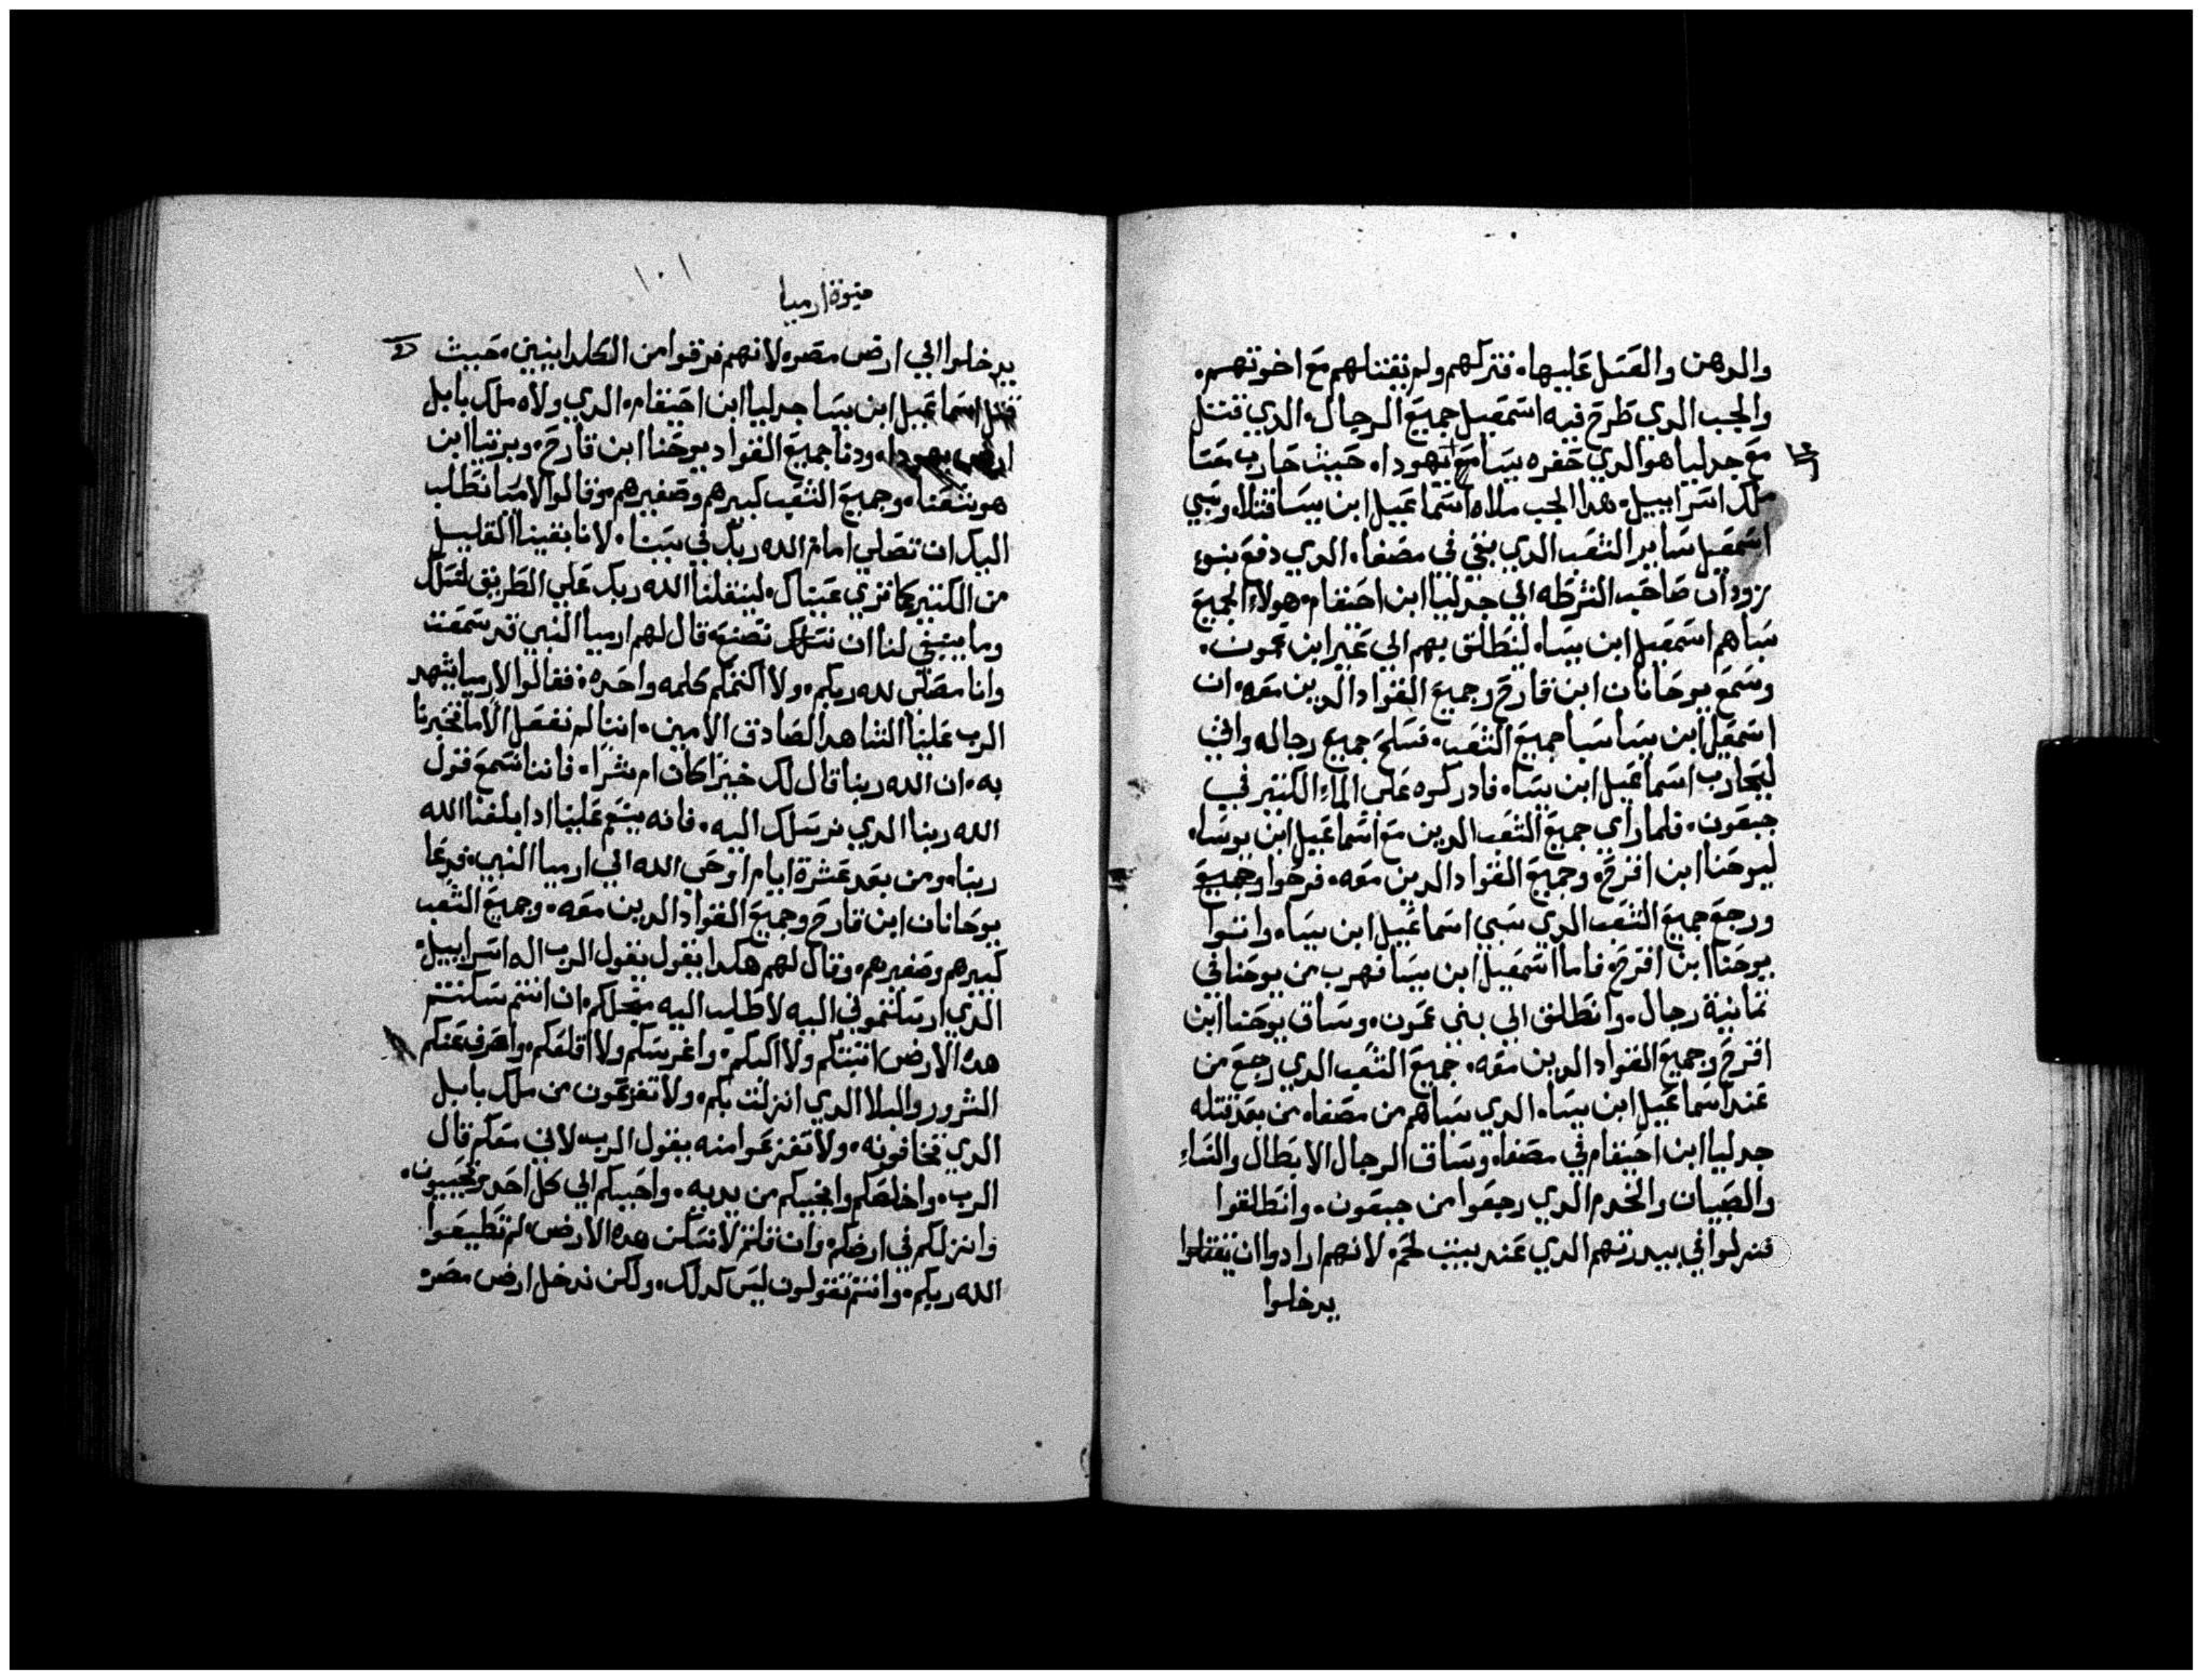 والدهن والعسل عليها. فتركهم ولم يقتلهم مع اخوتهم.
والجب الدي طرح فيه اسمعيل جميع الرجال. الدي قتل
مع جدليا هو الدي حفره يسا مع يهودا. حيث حارب معسا
ملك اسراييل. هدا الجب ملاه اسماعيل ابن يسا قتلا. وسبي
اسمعيل ساير الشعب الدي بقي في مصفا. الدي دفع بنو
نزودان صاحب الشرطه الي جدليا ابن احيقام. هولاء الجميع
سباهم اسمعيل ابن يسا. لينطلق بهم الي عبر ابن عمون.
وسمع يوحانان ابن قارح وجميع القواد الدين معه. ان
اسمعيل ابن يسا سبا جميع الشعب. فسلح جميع رجاله واتي
ليحارب اسماعيل ابن يسا. فادركوه علي الماء الكتير في
جبعون. فلما راي جميع الشعب الدين مع اسماعيل ابن يوسا.
ليوحنا ابن اقرح. وجميع القواد الدين معه. فرحوا وجميع
ورجع جميع الشعب الدي سبي اسماعيل ابن يسا. واتوا
يوحنا ابن اقرح. فاما اسمعيل ابن يسا فهرب من يوحنا في
تمانية رجال. وانطلق الي بني عمون. وساق يوحنا ابن
اقرح وجميع القواد الدين معه. جميع الشعب الدي رجع من
عند اسماعيل ابن يسا. الدي سباهم من مصفا. من بعد قتله
جدليا ابن احيقام في مصفا. وساق الرجال الابطال والنساء
والصبيان والخدم الدي رجعوا من جبعون. وانطلقوا
فنزلوا في بيدرتهم الدي عند بيت لحم. لانهم ارادوا ان ينقلوا
يدخلوا
نبوة ارميا
١٠١
يدخلوا الي ارض مصر. لانهم فرقوا من الكلدانيين. حيث
قتل اسماعيل ابن يسا جدليا ابن احيقام. الدي ولاه ملك بابل
ارض يهودا. ودنا جميع القواد يوحنا ابن قارح. ويزنيا ابن
هوشعنا. وجميع الشعب كبيرهم وصغيرهم. وقالوا لارميا نطلب
اليك ان تصلي امام الله ربك في سببنا. لانا بقينا القليل
من الكتير كما تري عيناك. لينقلنا الله ربك علي الطريق لنسلك
وما ينبغي لنا ان نصنعه قال لهم ارميا النبي قد سمعت
وانا مصلي لله ربكم. ولا اكتمكم كلمه واحده. فقالوا لارميا يشهد
الرب علينا الشاهد الصادق الامين. اننا لم نفعل الا ما تخبرنا
به. ان الله ربنا قال لك خيرا كان ام شرا. فاننا نسمع قول
الله ربنا الدي نرسلك اليه. فانه ينعم علينا ادا بلغنا الله
ربنا. ومن بعد عشرة ايام اوحي الله الي ارميا النبي. فدعا
يوحانان ابن قارح وجميع القواد الدين معه. وجميع الشعب
كبيرهم وصغيرهم. وقال لهم هكدا يقول يقول الرب اله اسراييل.
الدي ارسلتموني اليه لاطلب اليه من اجلكم. ان انتم سكنتم
هده الارض اتبتكم ولا اكبكم. واغرسكم ولا اقلعكم. واصرف عنكم
الشرور والبلا الدي انزلت بكم. ولا تفزعون من ملك بابل
الدي تخافونه. ولا تفزعوا منه يقول الرب. لاني معكم قال
الرب. واخلصكم وانجيكم من يديه. واحببكم الي كل احد وتحببون.
وانزلكم في ارضكم. وان قلتم لا نسكن هده الارض. لم تطيعوا
الله ربكم. وانتم تقولون ليس كدلك. ولكن ندخل ارض مصر.